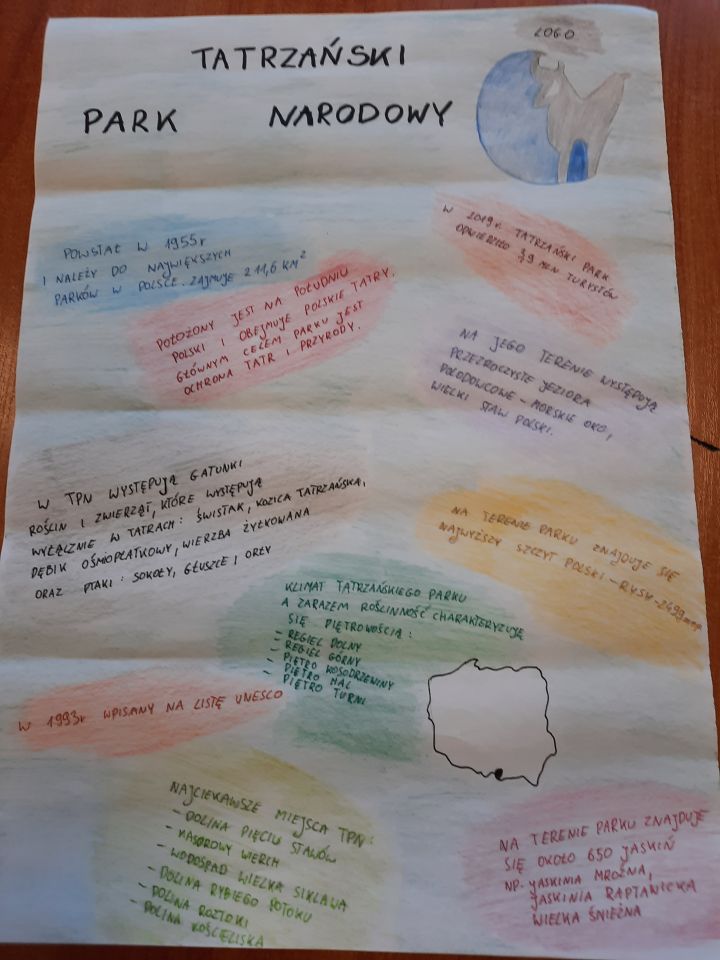 LOGO
TATRZAŃSKI
PARK NARODOWY
POWSTAŁ W 1955r
I NALEŻY DO NAJWIĘKSZYCH
PARKÓW W POLSCE. ZAJMUJE 211,6 KM²
W 2019r. TATRZAŃSKI PARK
ODWIEDZIŁO 3,9 MLN TURYSTÓW
POŁOŻONY JEST NA POŁUDNIU
POLSKI I OBEJMUJE POLSKIE TATRY.
GŁÓWNYM CELEM PARKU JEST
OCHRONA TATR I PRZYRODY.
NA JEGO TERENIE WYSTĘPUJĄ
PRZEZROCZYSTE JEZIORA
POLODOWCOWE - MORSKIE OKO,
WIELKI STAW POLSKI.
W TPN WYSTĘPUJĄ GATUNKI
ROŚLIN I ZWIERZĄT, KTÓRE WYSTĘPUJĄ
WYŁĄCZNIE W TATRACH: ŚWISTAK, KOZICA TATRZAŃSKA,
DĘBIK OŚMIOPŁATKOWY, WIERZBA ŻYŁKOWANA
ORAZ PTAKI: SOKOŁY, GŁUSZCE I ORŁY
NA TERENIE PARKU ZNAJDUJE SIĘ
NAJWYŻSZY SZCZYT POLSKI - RYSY - 2499
KLIMAT TATRZAŃSKIEGO PARKU
A ZARAZEM ROŚLINNOŚĆ CHARAKTERYZUJE
SIĘ PIĘTROWOŚCIĄ:
- REGIEL DOLNY
- REGIEL GÓRNY
- PIĘTRO KOSODRZEWINY
- PIĘTRO HAL
- PIĘTRO TURNI
W 1993r WPISANY NA LISTĘ UNESCO
NAJCIEKAWSZE MIEJSCA TPN:
- DOLINA PIĘCIU STAWÓW
- KASPROWY WIERCH
- WODOSPAD WIELKA SIKLAWA
- DOLINA RYBIEGO POTOKU
- DOLINA ROZTOKI
- DOLINA KOŚCIELISKA
NA TERENIE PARKU ZNAJDUJE
SIĘ OKOŁO 650 JASKIŃ
NP. JASKINIA MROŹNA,
JASKINIA RAPTAWICKA
WIELKA ŚNIEŻNA